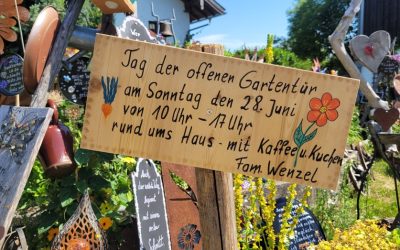 Tag der offenen Gartentür
am Sonntag den 28. Juni
von 10 Uhr - 17 Uhr
rund ums Haus - mit Kaffee u. Kuchen
Fam. Wenzel